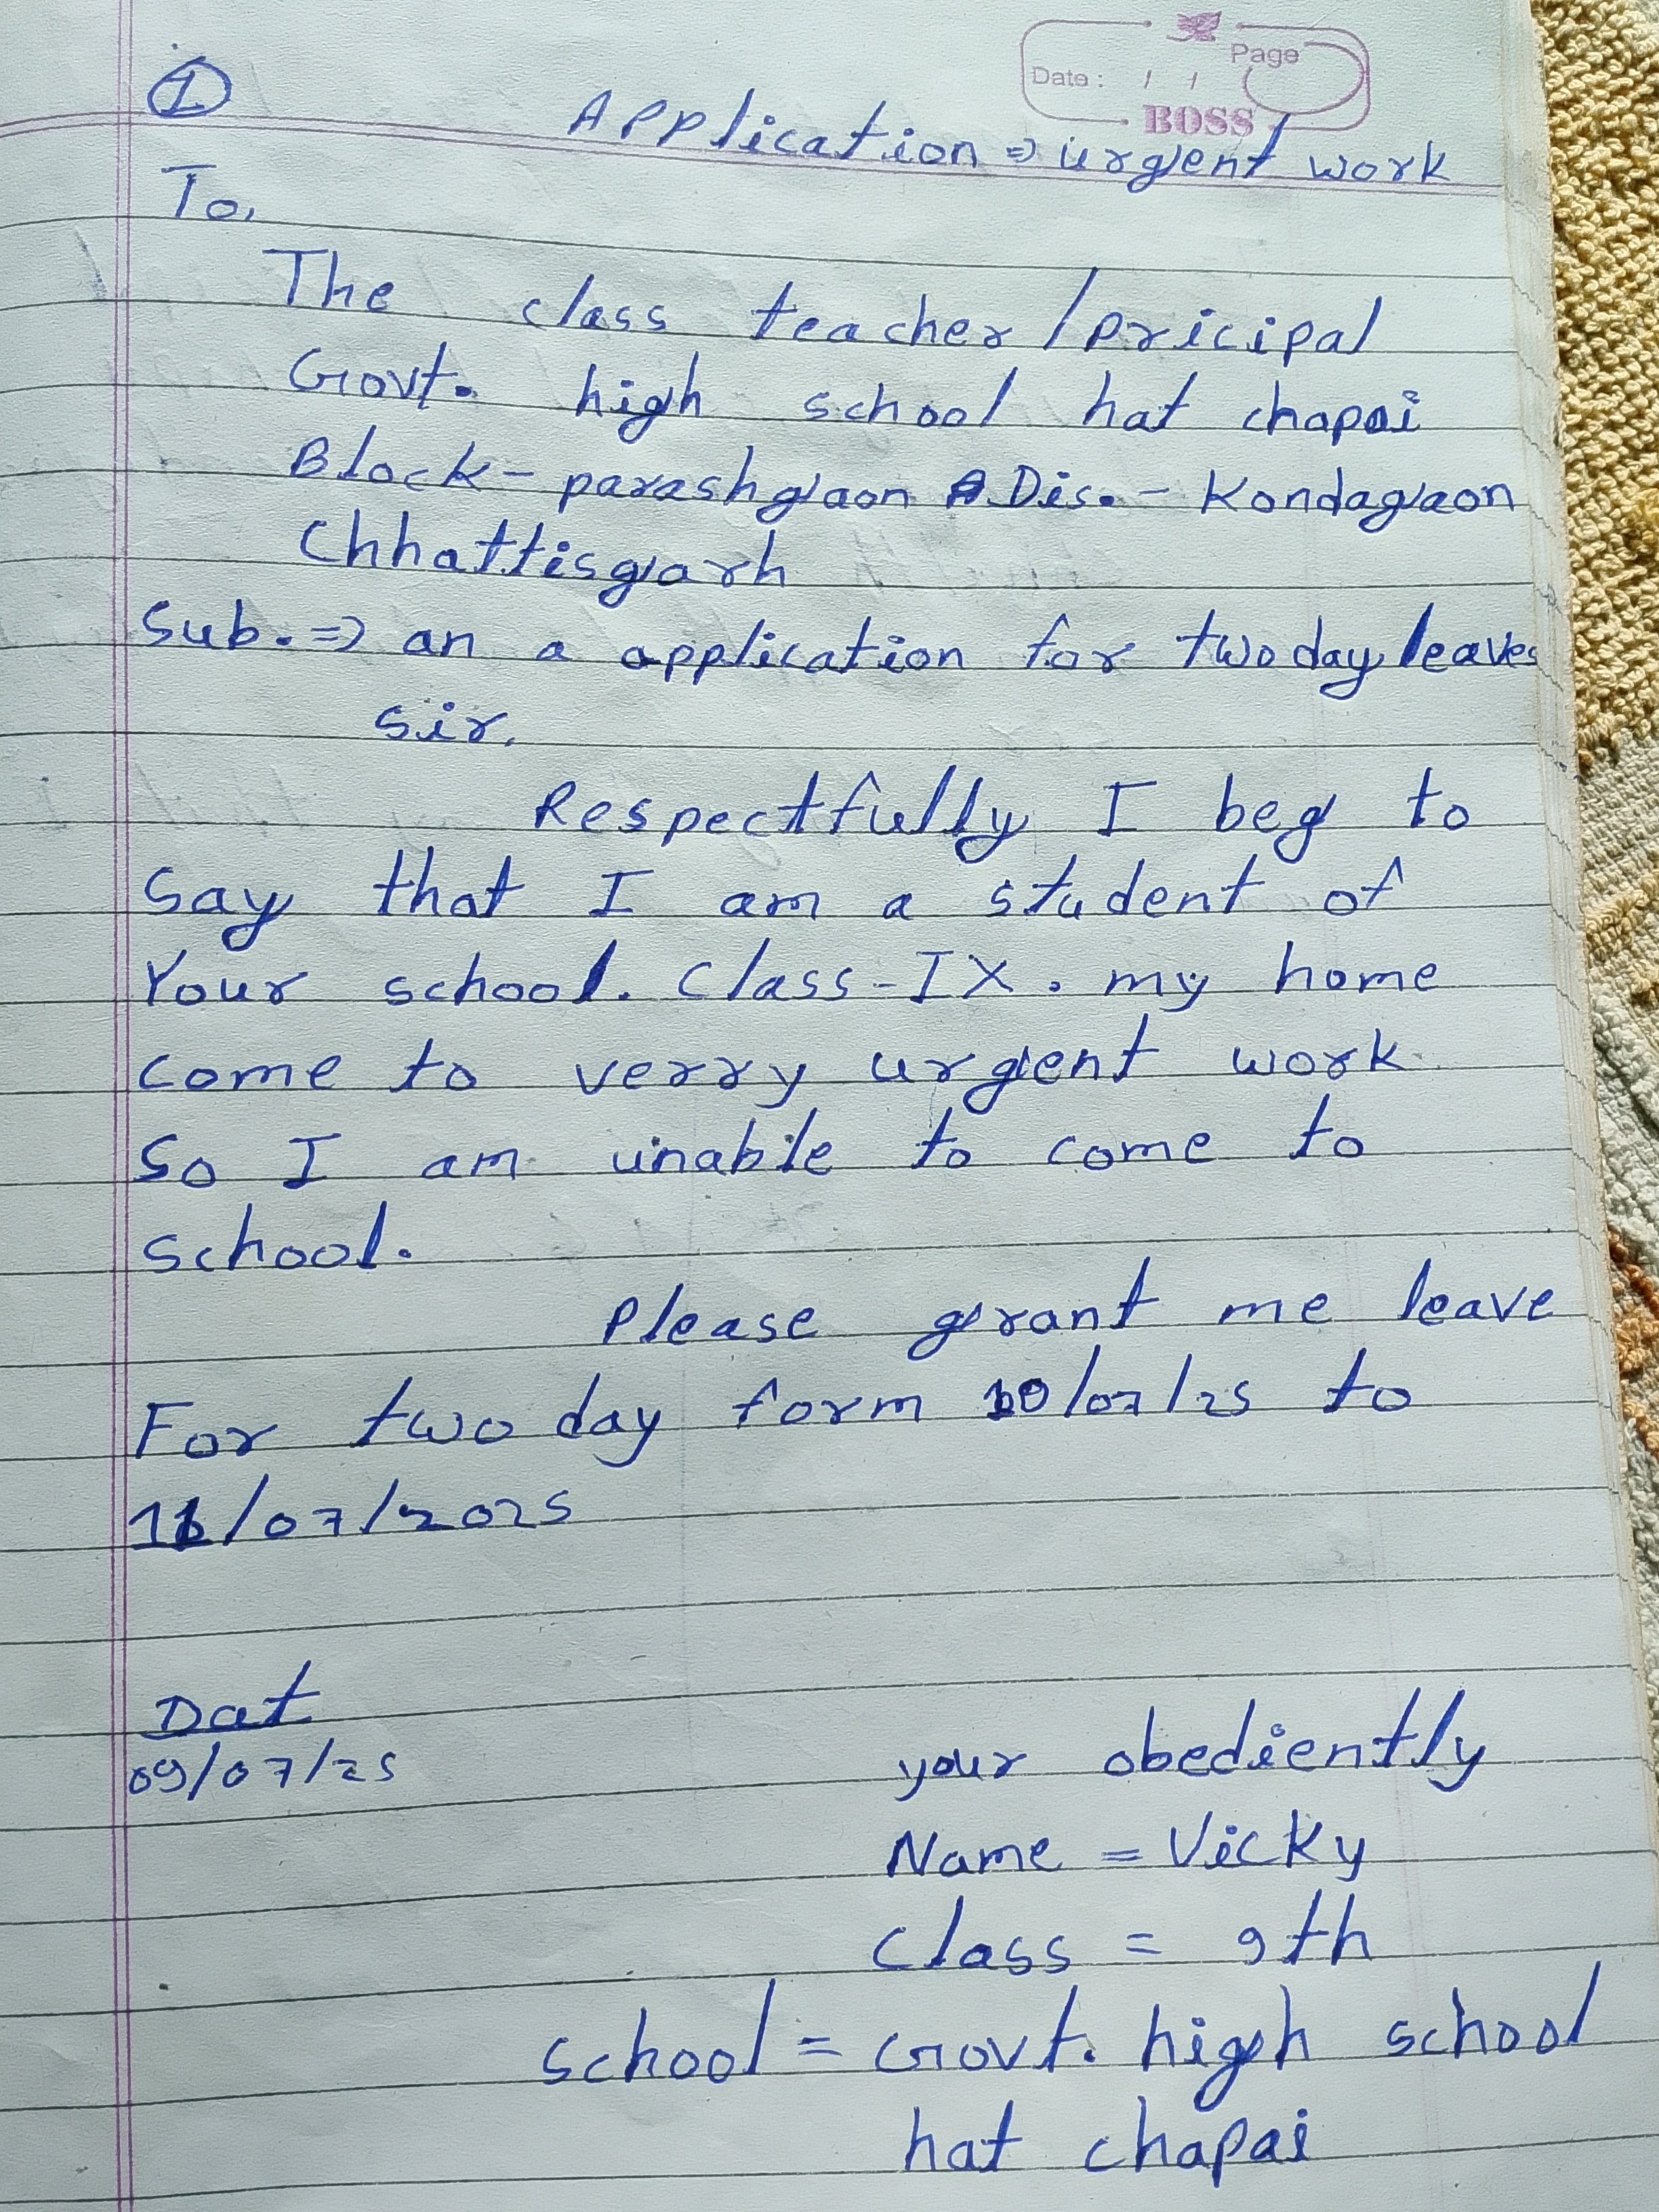 Page
Date : / /
BOSS
1
Application => urgent work
To,
The class teacher / pricipal
Govt. high school hat chapai
Block - parashgaon Dis. - Kondagaon
Chhattisgarh
Sub. => an a application for two day leaves
sir,
Respectfully I beg to
say that I am a student of
Your school. Class - IX. my home
come to verry urgent work
So I am unable to come to
school.
Please grant me leave
For two day form 10/07/25 to
11/07/2025
Dat
09/07/25
your obediently
Name = Vicky
class = 9th
school = Govt. high school
hat chapai